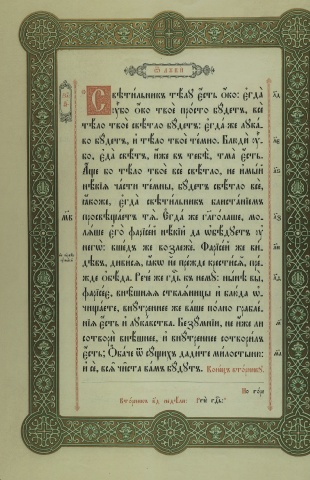 Ѿ лꙋки
Свѣтильникъ тѣлꙋ є҆сть ѻ҆́ко: є҆гда
ᲂу҆бо ѻ҆ко твоѐ просто бꙋдетъ, всѐ
тѣло твоѐ свѣтло бꙋдетъ: є҆гда же лꙋка-
во бꙋдетъ, и҆ тѣло твоѐ темно. Блюди ᲂу҆-
бо, є҆да свѣтъ, и҆же въ тебѣ, тма є҆сть.
Аще бо тѣло твоѐ всѐ свѣтло, не и҆мый
нѣкїѧ части темны, бꙋдетъ свѣтло всѐ,
ꙗ҆коже, є҆гда свѣтильникъ блистанїемъ
просвѣщаетъ тѧ. Є҆гда же гл҃голаше, мо-
лѧше є҆го фарїсей нѣкїй да ѡ҆бѣдꙋетъ ᲂу҆
негѡ̀: вшедъ же возлеже. Фарїсей же ви-
дѣвъ, дивисѧ, ꙗ҆кѡ не прежде крестисѧ, пре-
жде ѡ҆бѣда. Рече же гд҇ь къ немꙋ: нынѣ вы,
фарїсее, внѣшнѧѧ сткл҃ѧницы и҆ блюда ѡ҆-
чищаете, внꙋтреннее же ваше полно грабле-
нїѧ є҆сть и҆ лꙋкавства. Безꙋмнїи, не и҆же ли
сотвори внѣшнее, и҆ внꙋтреннее сотворилъ
є҆сть; Ѻ҆баче ѿ сꙋщихъ дадите милостыню:
и҆ се, всѧ чиста вамъ бꙋдꙋтъ. Конецъ вторникꙋ.
Вторникъ
недѣли: Рече гд҇ь: